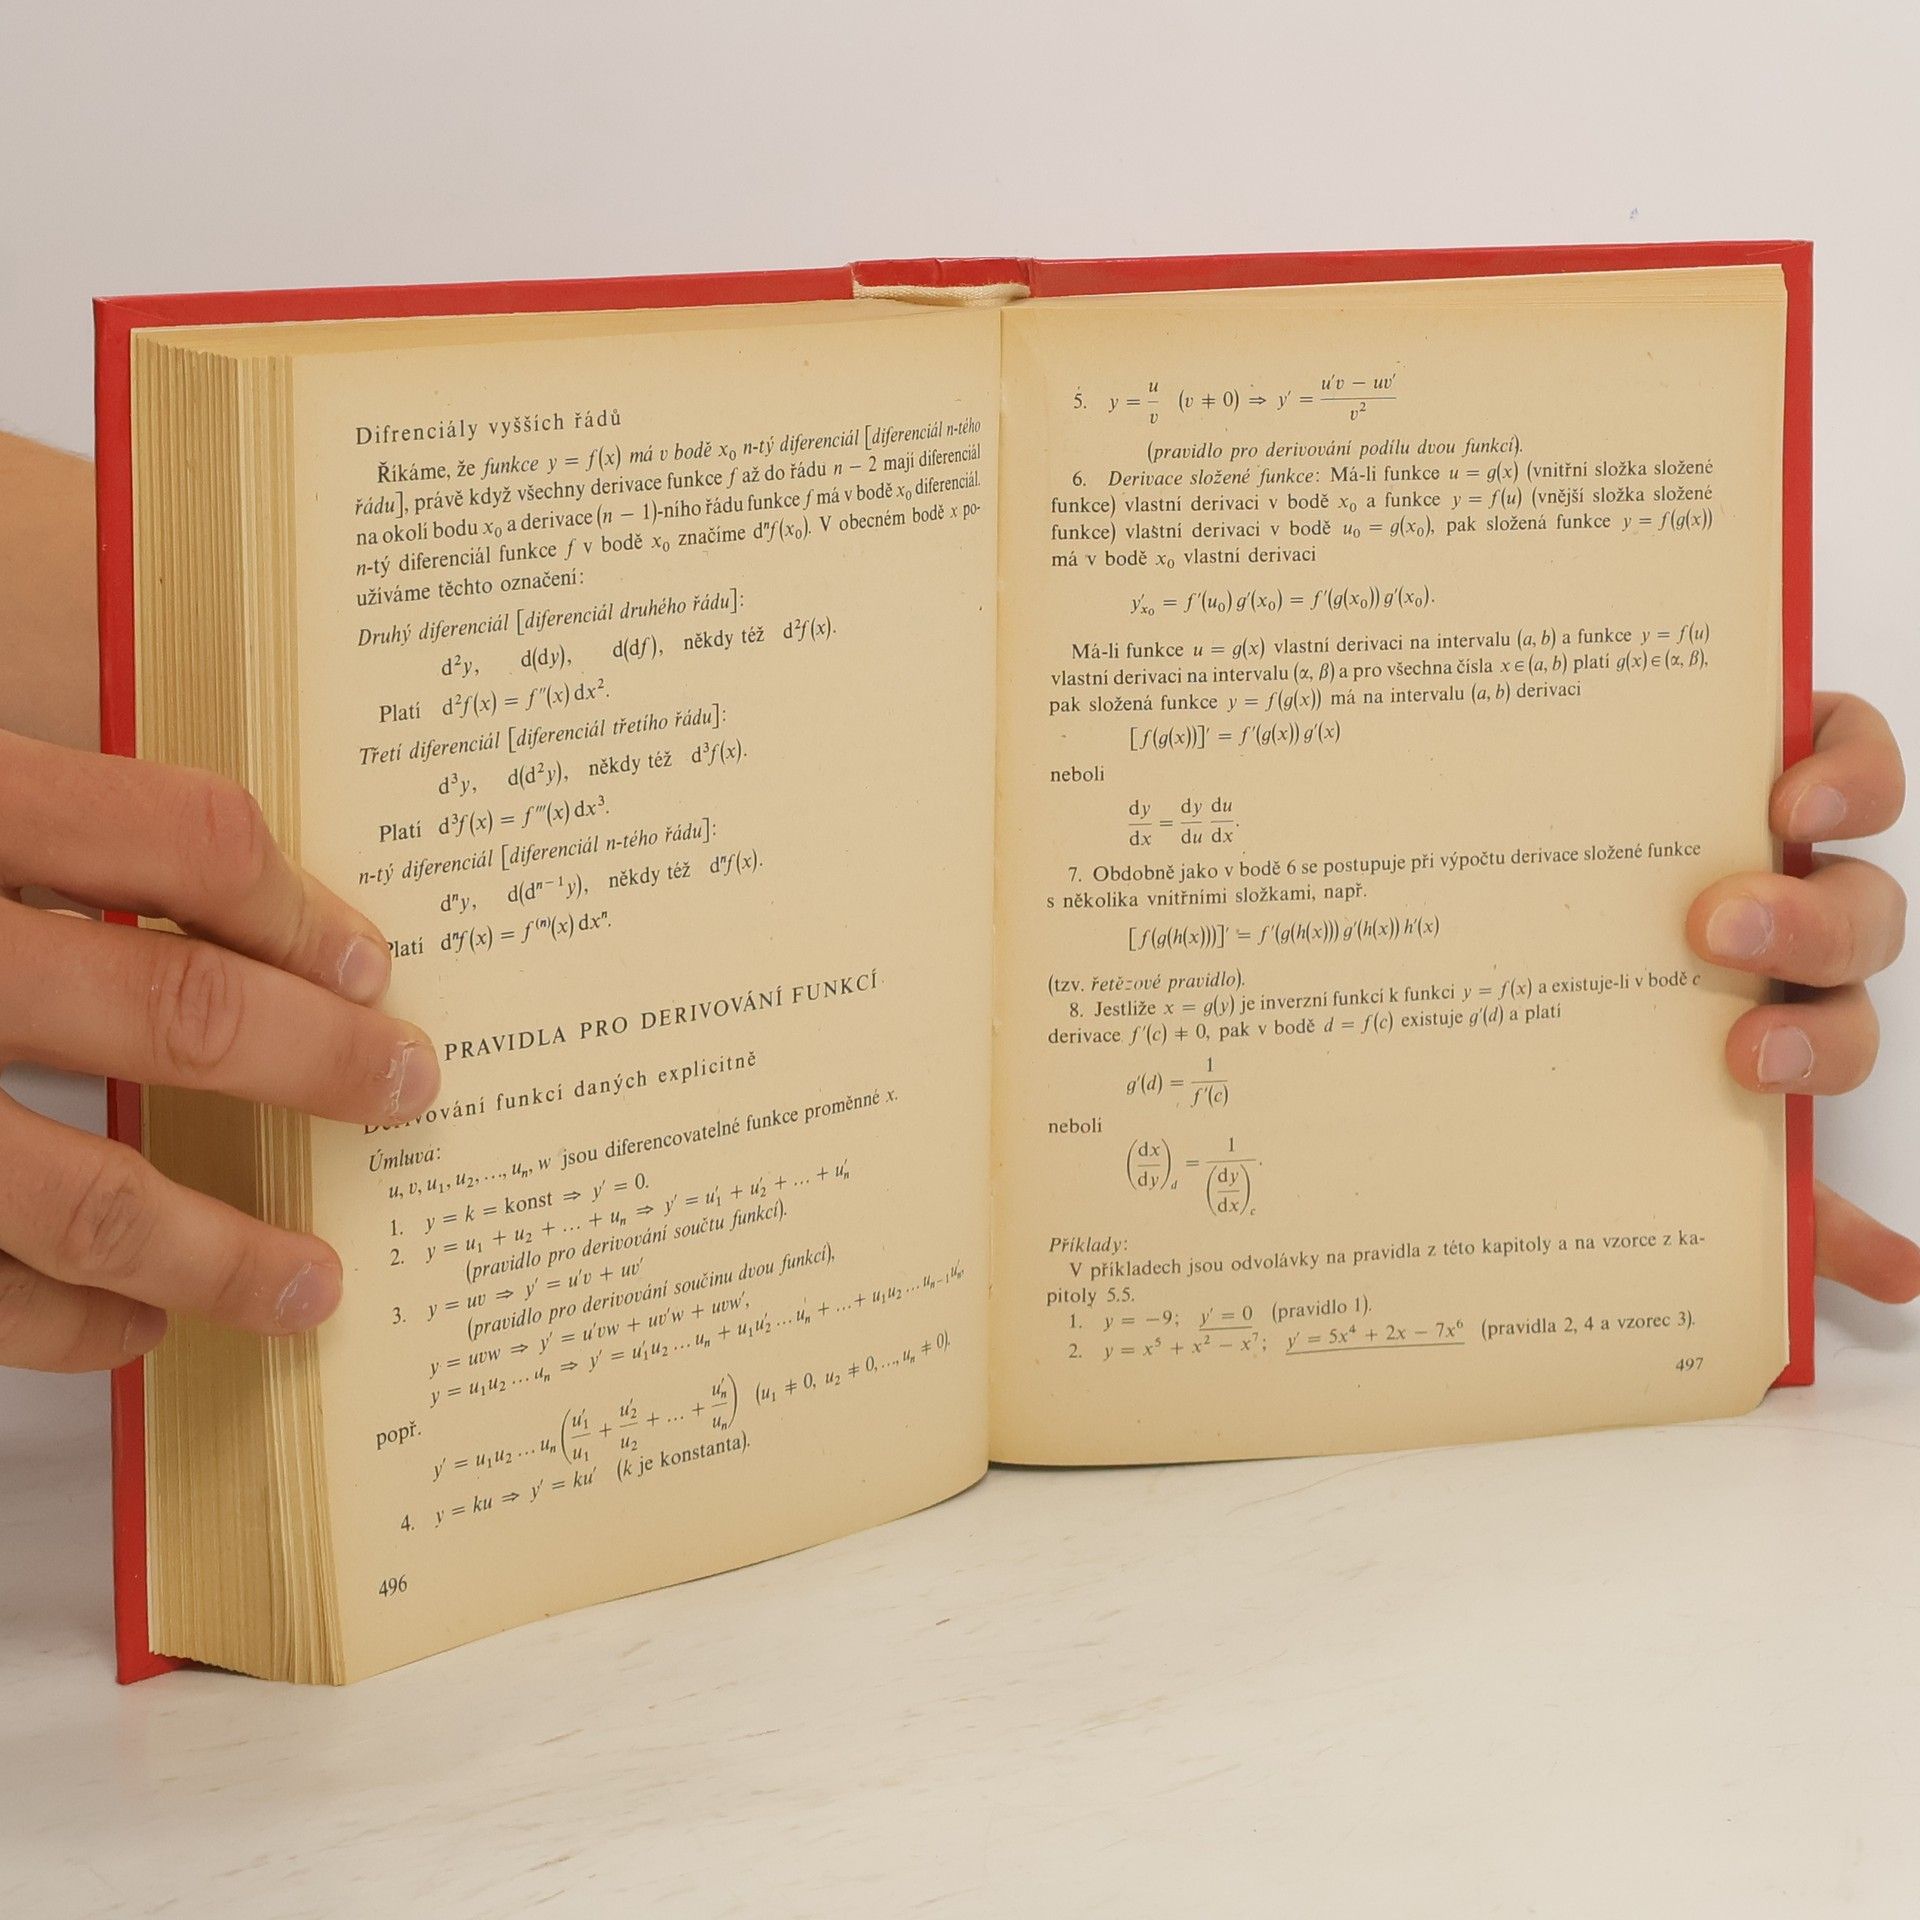 Difrenciály vyšších řádů
Říkáme, že funkce y = f(x) má v bodě x₀ n-tý diferenciál [diferenciál n-tého
řádu], právě když všechny derivace funkce f až do řádu n − 2 mají diferenciál
na okolí bodu x₀ a derivace (n − 1)-ního řádu funkce f má v bodě x₀ diferenciál.
n-tý diferenciál funkce f v bodě x₀ značíme dⁿf(x₀). V obecném bodě x po-
užíváme těchto označení:
Druhý diferenciál [diferenciál druhého řádu]:
d²y, d(dy), d(df), někdy též d²f(x).
Platí d²f(x) = f″(x) dx².
Třetí diferenciál [diferenciál třetího řádu]:
d³y, d(d²y), někdy též d³f(x).
Platí d³f(x) = f‴(x) dx³.
n-tý diferenciál [diferenciál n-tého řádu]:
dⁿy, d(dⁿ⁻¹y), někdy též dⁿf(x).
Platí dⁿf(x) = f⁽ⁿ⁾(x) dxⁿ.
PRAVIDLA PRO DERIVOVÁNÍ FUNKCÍ
Derivování funkcí daných explicitně
Úmluva:
u, v, u₁, u₂, ..., uₙ, w jsou diferencovatelné funkce proměnné x.
1. y = k = konst ⇒ y′ = 0.
2. y = u₁ + u₂ + ... + uₙ ⇒ y′ = u₁′ + u₂′ + ... + uₙ′
(pravidlo pro derivování součtu funkcí).
3. y = uv ⇒ y′ = u′v + uv′
(pravidlo pro derivování součinu dvou funkcí),
y = uvw ⇒ y′ = u′vw + uv′w + uvw′,
y = u₁u₂ ... uₙ ⇒ y′ = u₁′u₂ ... uₙ + u₁u₂′ ... uₙ + ... + u₁u₂ ... uₙ₋₁uₙ′,
popř.
y′ = u₁u₂ ... uₙ (u₁′/u₁ + u₂′/u₂ + ... + uₙ′/uₙ) (u₁ ≠ 0, u₂ ≠ 0, ..., uₙ ≠ 0).
4. y = ku ⇒ y′ = ku′ (k je konstanta).
496
5. y = u/v (v ≠ 0) ⇒ y′ = (u′v − uv′)/v²
(pravidlo pro derivování podílu dvou funkcí).
6. Derivace složené funkce: Má-li funkce u = g(x) (vnitřní složka složené
funkce) vlastní derivaci v bodě x₀ a funkce y = f(u) (vnější složka složené
funkce) vlastní derivaci v bodě u₀ = g(x₀), pak složená funkce y = f(g(x))
má v bodě x₀ vlastní derivaci
y′ₓ₀ = f′(u₀) g′(x₀) = f′(g(x₀)) g′(x₀).
Má-li funkce u = g(x) vlastní derivaci na intervalu (a, b) a funkce y = f(u)
vlastní derivaci na intervalu (α, β) a pro všechna čísla x ∈ (a, b) platí g(x) ∈ (α, β),
pak složená funkce y = f(g(x)) má na intervalu (a, b) derivaci
[f(g(x))]′ = f′(g(x)) g′(x)
neboli
dy/dx = dy/du du/dx.
7. Obdobně jako v bodě 6 se postupuje při výpočtu derivace složené funkce
s několika vnitřními složkami, např.
[f(g(h(x)))]′ = f′(g(h(x))) g′(h(x)) h′(x)
(tzv. řetězové pravidlo).
8. Jestliže x = g(y) je inverzní funkcí k funkci y = f(x) a existuje-li v bodě c
derivace f′(c) ≠ 0, pak v bodě d = f(c) existuje g′(d) a platí
g′(d) = 1/f′(c)
neboli
(dx/dy)_d = 1/(dy/dx)_c.
Příklady:
V příkladech jsou odvolávky na pravidla z této kapitoly a na vzorce z ka-
pitoly 5.5.
1. y = −9; y′ = 0 (pravidlo 1).
2. y = x⁵ + x² − x⁷; y′ = 5x⁴ + 2x − 7x⁶ (pravidla 2, 4 a vzorec 3).
497